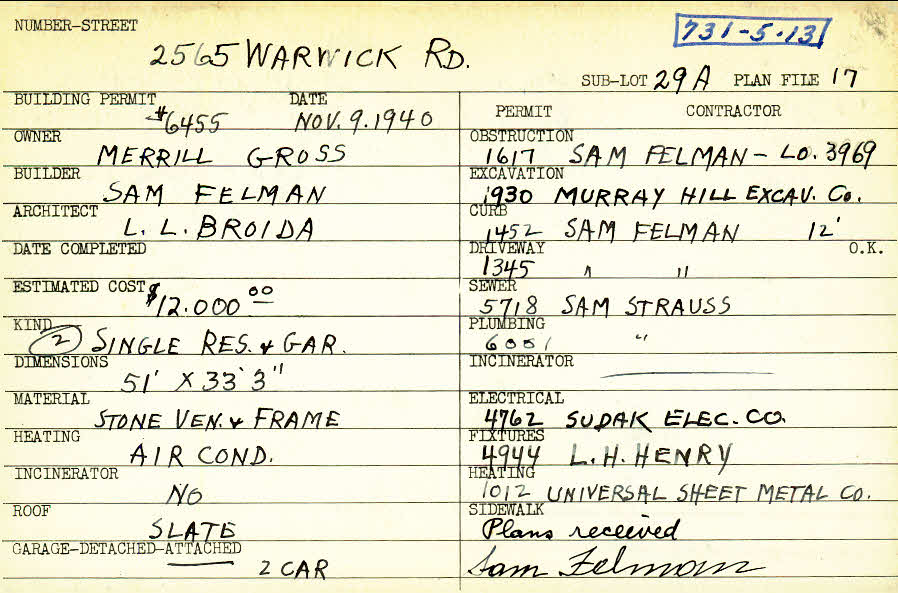 NUMBER-STREET
731-5-13
2565 WARWICK RD.
SUB-LOT 29A PLAN FILE 17
BUILDING PERMIT DATE
#6455 NOV. 9. 1940
OWNER
MERRILL GROSS
BUILDER
SAM FELMAN
ARCHITECT
L. L. BROIDA
DATE COMPLETED
ESTIMATED COST
$12.000 00
KIND
2 SINGLE RES. & GAR.
DIMENSIONS
51' X 33' 3"
MATERIAL
STONE VEN. & FRAME
HEATING
AIR COND.
INCINERATOR
NO
ROOF
SLATE
GARAGE-DETACHED-ATTACHED
2 CAR
PERMIT CONTRACTOR
OBSTRUCTION
1617 SAM FELMAN - LO. 3969
EXCAVATION
1930 MURRAY HILL EXCAV. Co.
CURB
1452 SAM FELMAN 12'
DRIVEWAY O.K.
1345 " "
SEWER
5718 SAM STRAUSS
PLUMBING
6001 "
INCINERATOR
ELECTRICAL
4762 SUDAK ELEC. CO.
FIXTURES
4944 L. H. HENRY
HEATING
1012 UNIVERSAL SHEET METAL Co.
SIDEWALK
Plans received
Sam Felman